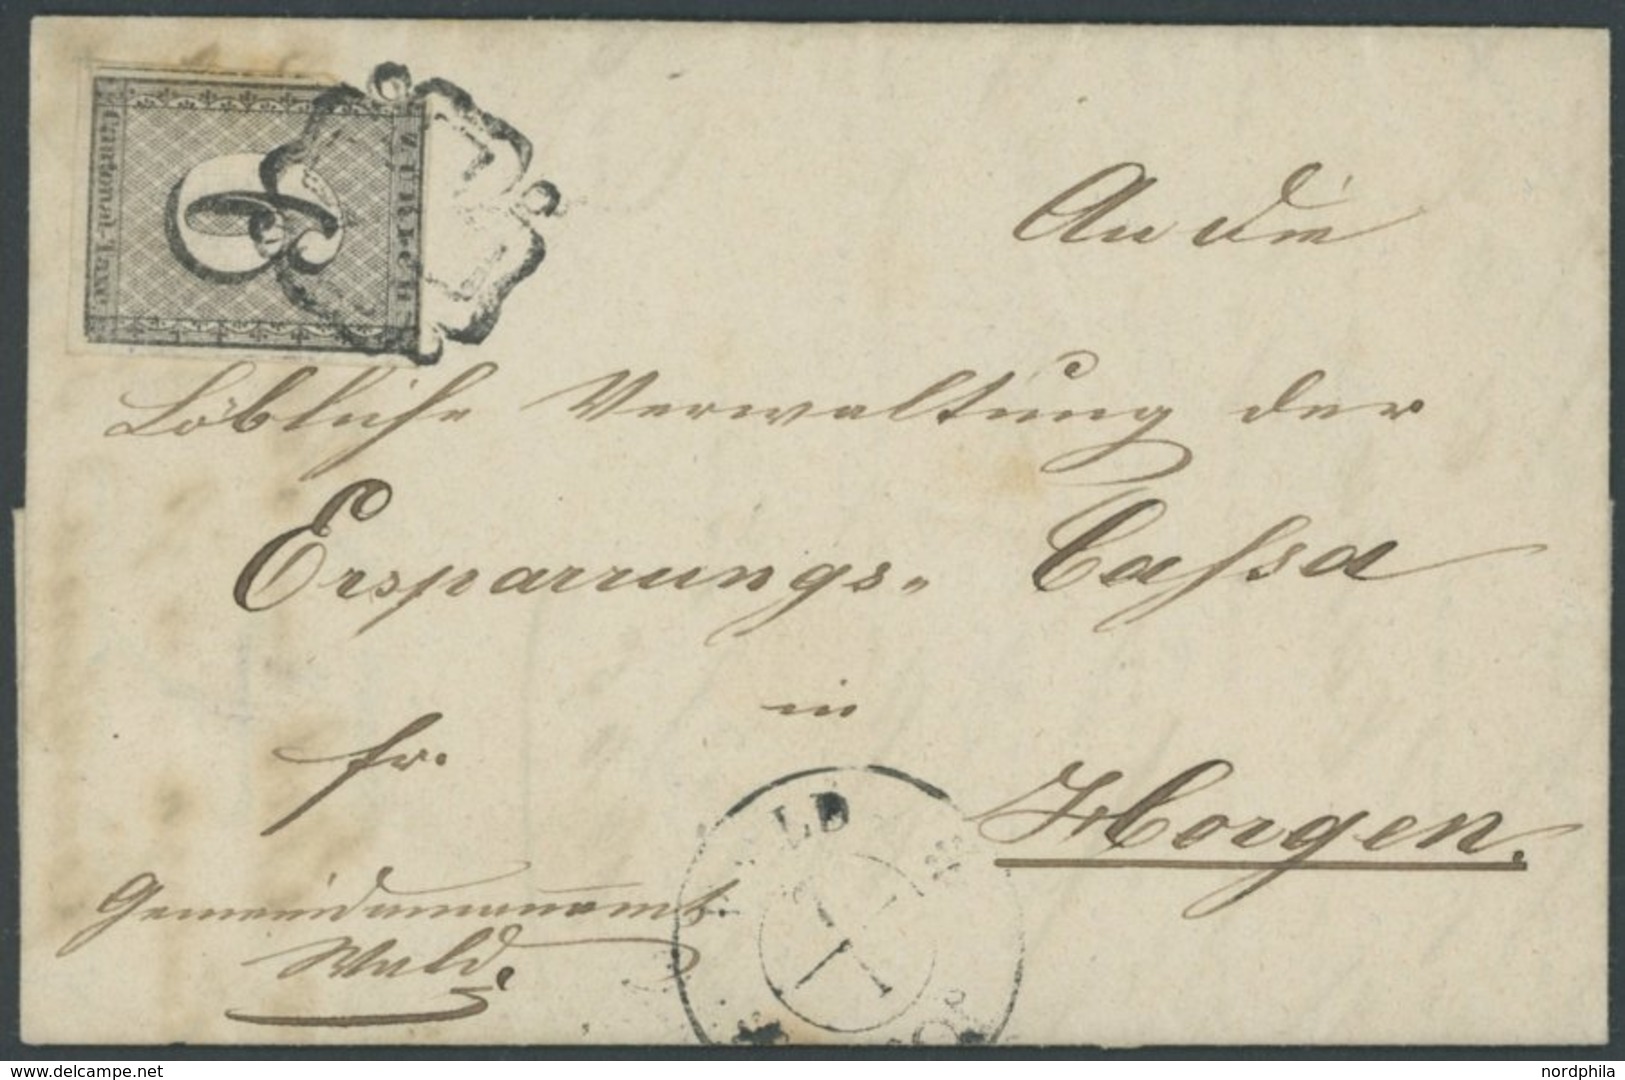 ZÜRICH
6
Cantonal-Taxe
An die
Löbliche Verwaltung der
Ersparrungs-Cassa
in
fr.
Horgen.
Gemeindammannamt
Wald.
nordphila
www.delcampe.net